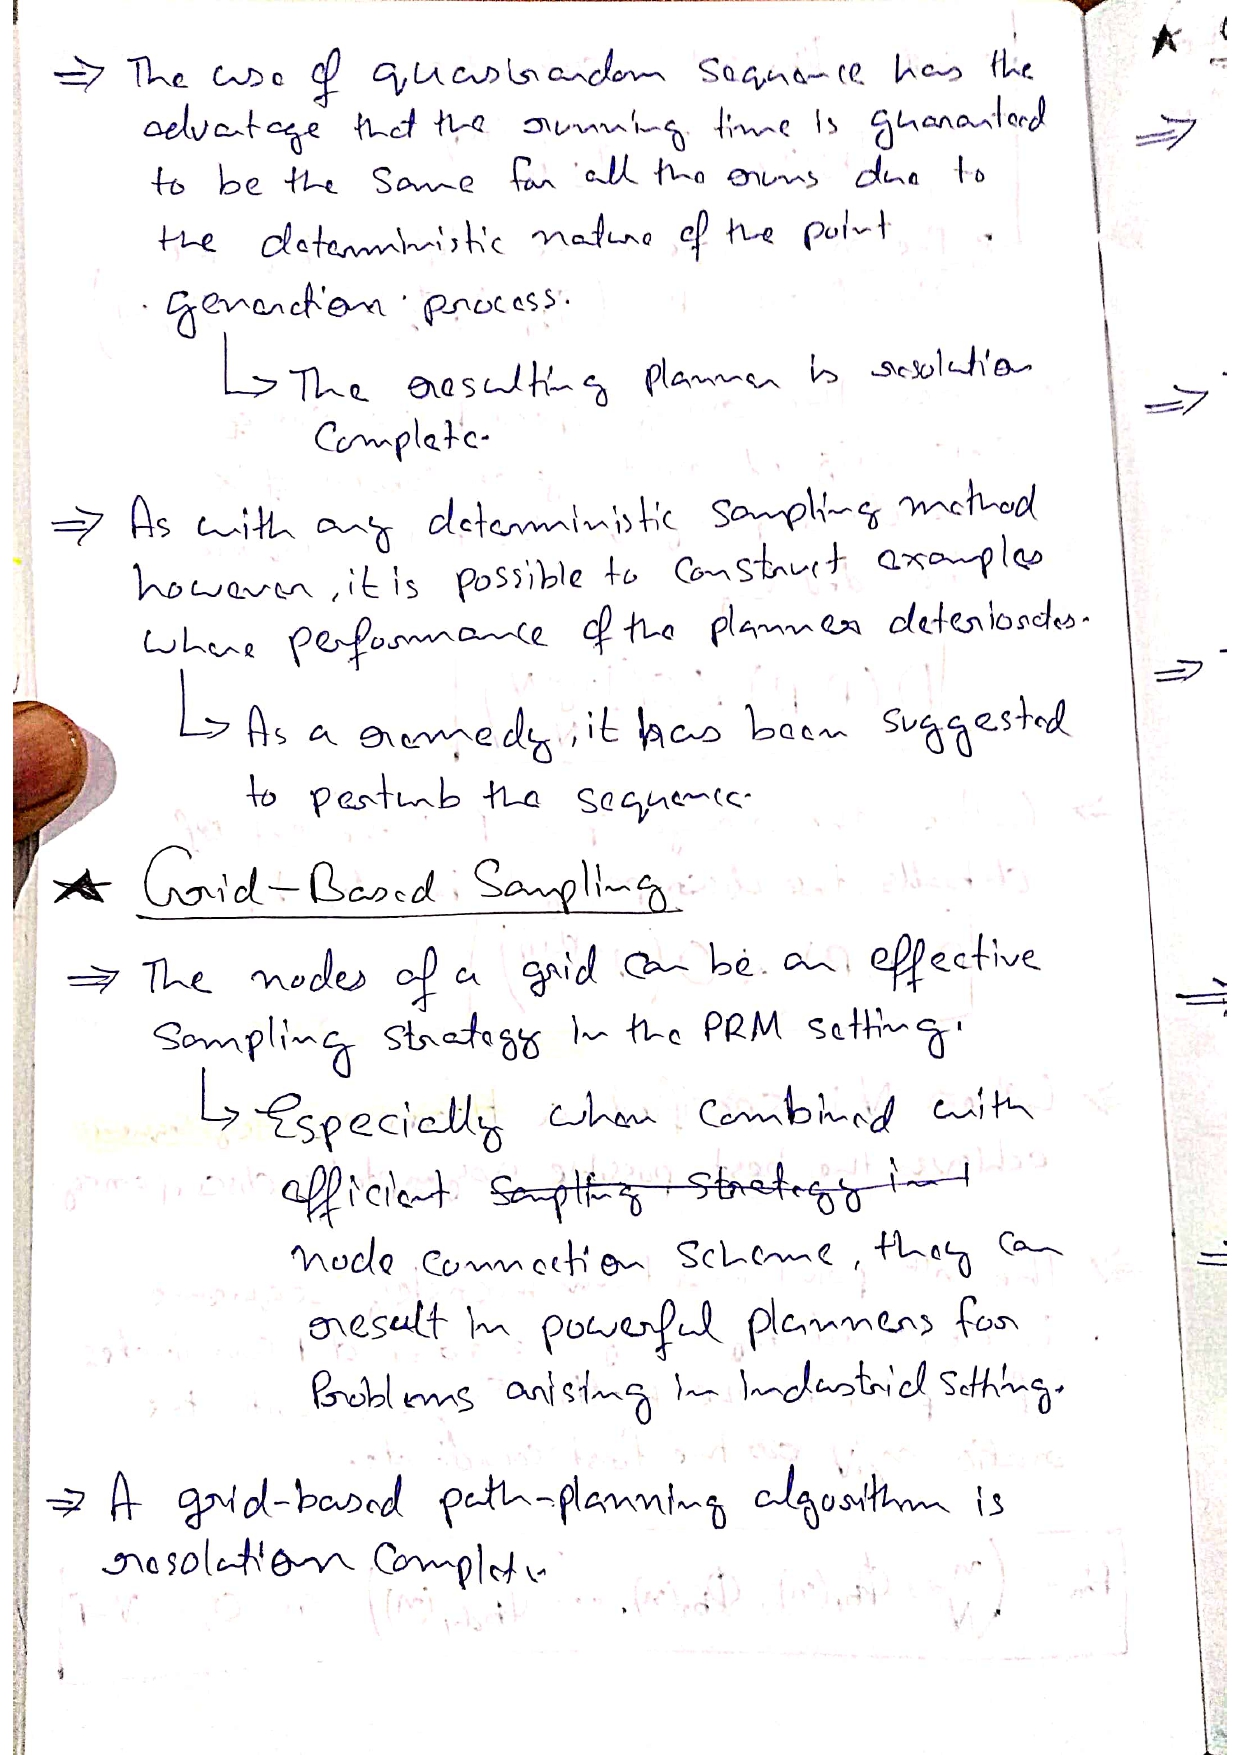 ⇒ The use of quasirandom sequence has the
advantage that the running time is guaranteed
to be the same for all the runs due to
the deterministic nature of the point
generation process.
↳ The resulting planner is resolution
complete.
⇒ As with any deterministic sampling method
however, it is possible to construct examples
where performance of the planner deteriorates.
↳ As a remedy, it has been suggested
to perturb the sequence.
★ Grid-Based Sampling
⇒ The nodes of a grid can be an effective
sampling strategy in the PRM setting.
↳ Especially when combined with
efficient sampling strategy in t
node connection scheme, they can
result in powerful planners for
Problems arising in industrial setting.
⇒ A grid-based path-planning algorithm is
resolution complete.